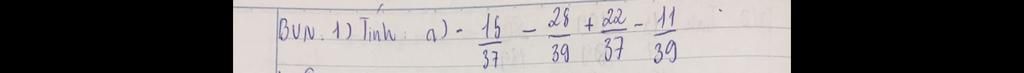 BVN. 1) Tính: a) - 15/37 - 28/39 + 22/37 - 11/39